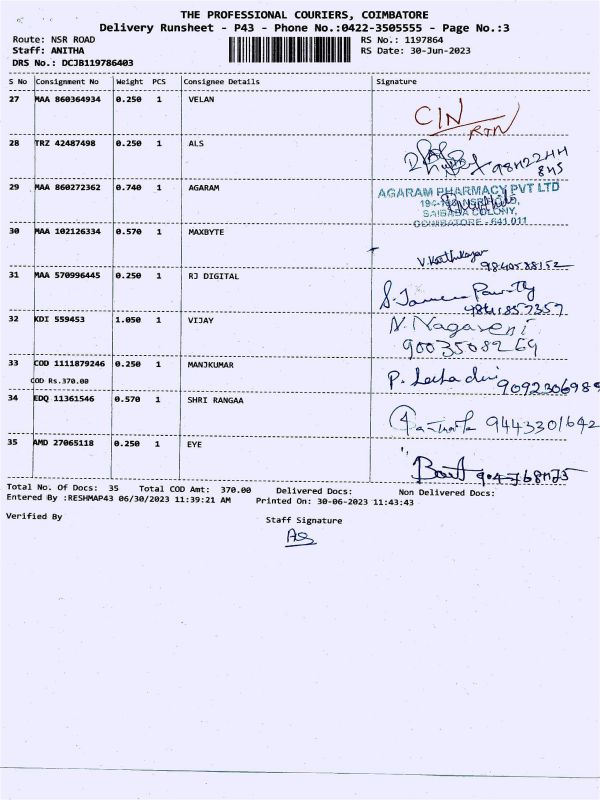 THE PROFESSIONAL COURIERS, COIMBATORE
Delivery Runsheet - P43 - Phone No.:0422-3505555 - Page No.:3
Route: NSR ROAD RS No.: 1197864
Staff: ANITHA RS Date: 30-Jun-2023
DRS No.: DCJB119786403
S No Consignment No Weight PCS Consignee Details Signature
27 MAA 860364934 0.250 1 VELAN
CIN
RTN
28 TRZ 42487498 0.250 1 ALS
29 MAA 860272362 0.740 1 AGARAM
AGARAM PHARMACY PVT LTD
SAIBABA COLONY,
COIMBATORE - 641 011
30 MAA 102126334 0.570 1 MAXBYTE
V. Karthikeyan
9840588152
31 MAA 570996445 0.250 1 RJ DIGITAL
32 KDI 559453 1.050 1 VIJAY
N. Nagaveni
9003508269
33 COD 1111879246 0.250 1 MANJKUMAR
COD Rs.370.00
P. 9092306989
34 EDQ 11361546 0.570 1 SHRI RANGAA
9443301642
35 AMD 27065118 0.250 1 EYE
Total No. Of Docs: 35 Total COD Amt: 370.00 Delivered Docs: Non Delivered Docs:
Entered By :RESHMAP43 06/30/2023 11:39:21 AM Printed On: 30-06-2023 11:43:43
Verified By Staff Signature